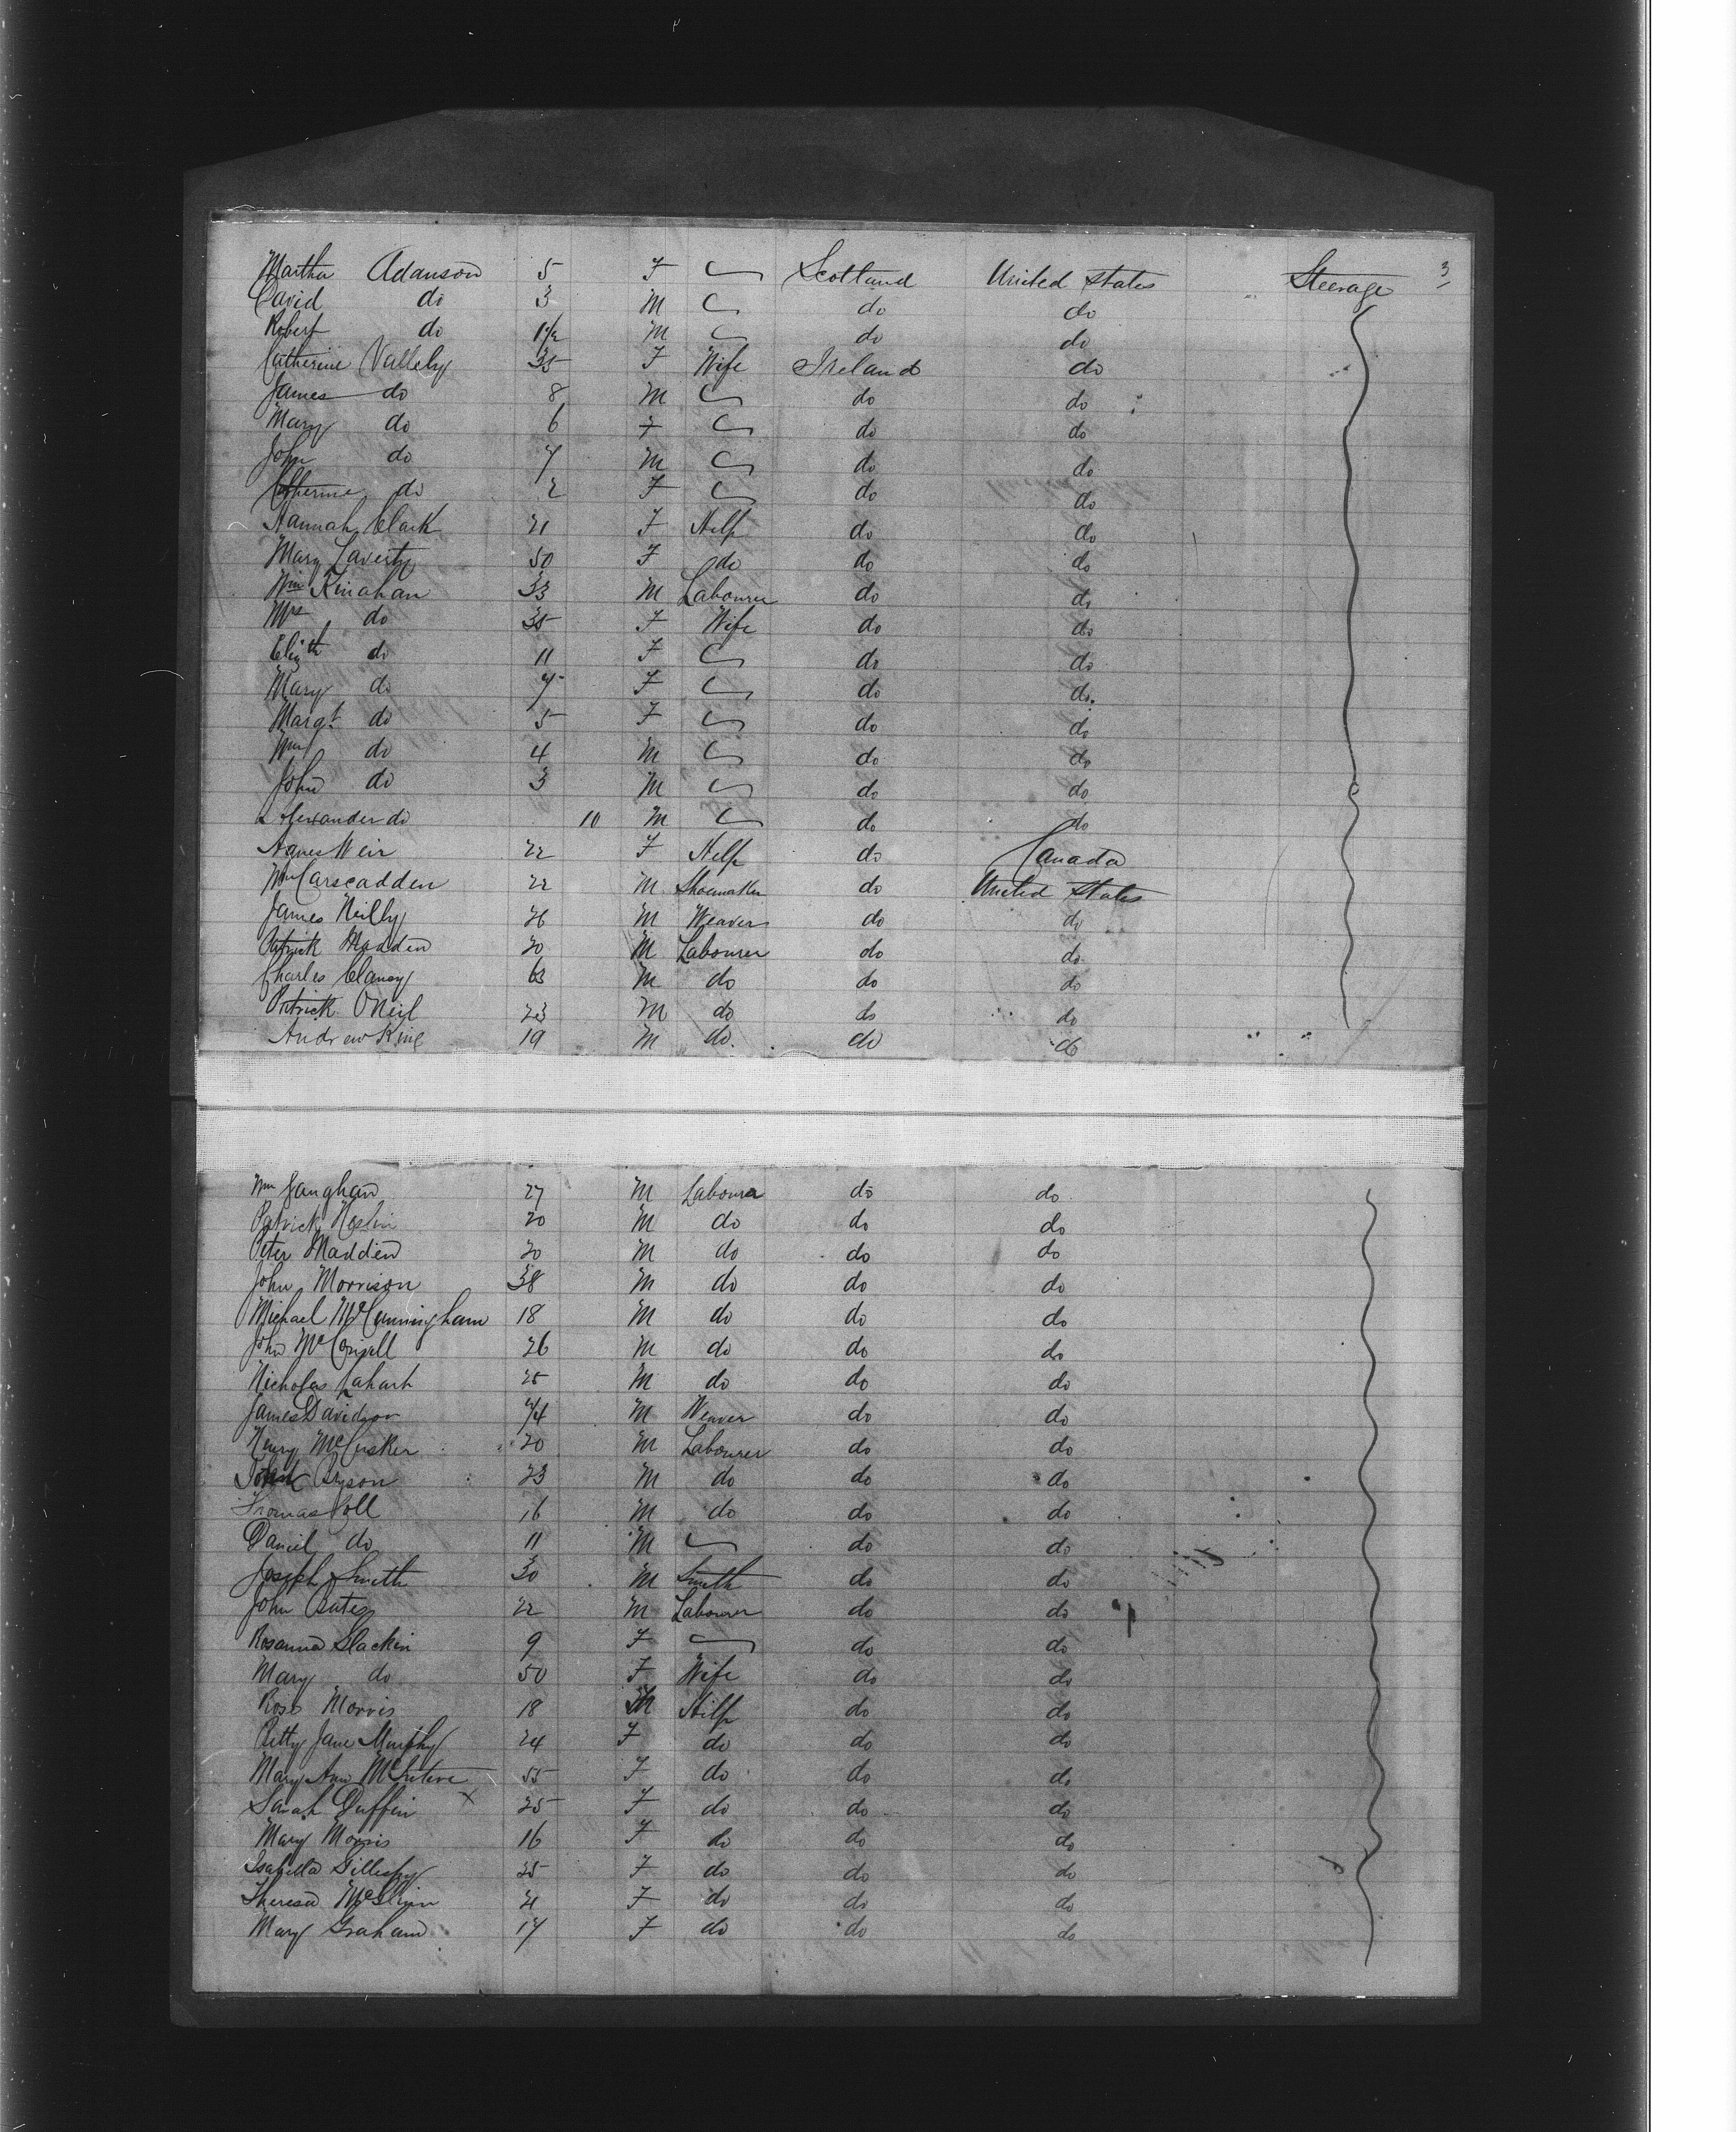 Martha Adamson 5 F Scotland United States Steerage 3
David do 3 M do do
Robert do 1½ M do do
Catherine Vallely 35 F Wife Ireland do
James do 8 M do do
Mary do 6 F do do
John do 4 M do do
Catherine do 2 F do do
Hannah Clark 21 F Help do do
Mary Laverty 50 F do do do
Wm Kinahan 33 M Labourer do do
Mrs do 35 F Wife do do
Elizth do 11 F do do
Mary do 7 F do do
Margt do 5 F do do
Wm do 4 M do do
John do 3 M do do
Alexander do 10 M do do
Agnes Weir 22 F Help do Canada
Wm Carscadden 22 M Shoemaker do United States
James Neilly 26 M Weaver do do
Patrick Madden 20 M Labourer do do
Charles Clancy 63 M do do do
Patrick ONeil 23 M do do do
Andrew King 19 M do do do
Wm 27 M Labourer do do
Patrick Heslin 20 M do do do
Peter Madden 20 M do do do
John Morrison 38 M do do do
Michael McCunningham 18 M do do do
John 26 M do do do
Nicholas Lahart 25 M do do do
James Davidson 44 M Weaver do do
Henry McCusker 20 M Labourer do do
Bryson 23 M do do do
Thomas Coll 16 M do do do
Daniel do 11 M do do
Joseph Smith 30 M Smith do do
John Bates 22 M Labourer do do
Rosanna Slackin 9 F do do
Mary do 50 F Wife do do
Ross Morris 18 M Help do do
Betty Jane Murphy 24 F do do do
Mary Ann McEnteve 55 F do do do
Sarah Duffin x 25 F do do do
Mary Morris 16 F do do do
Isabella Gillespy 25 F do do do
Theresa McGlynn 21 F do do do
Mary Graham 17 F do do do